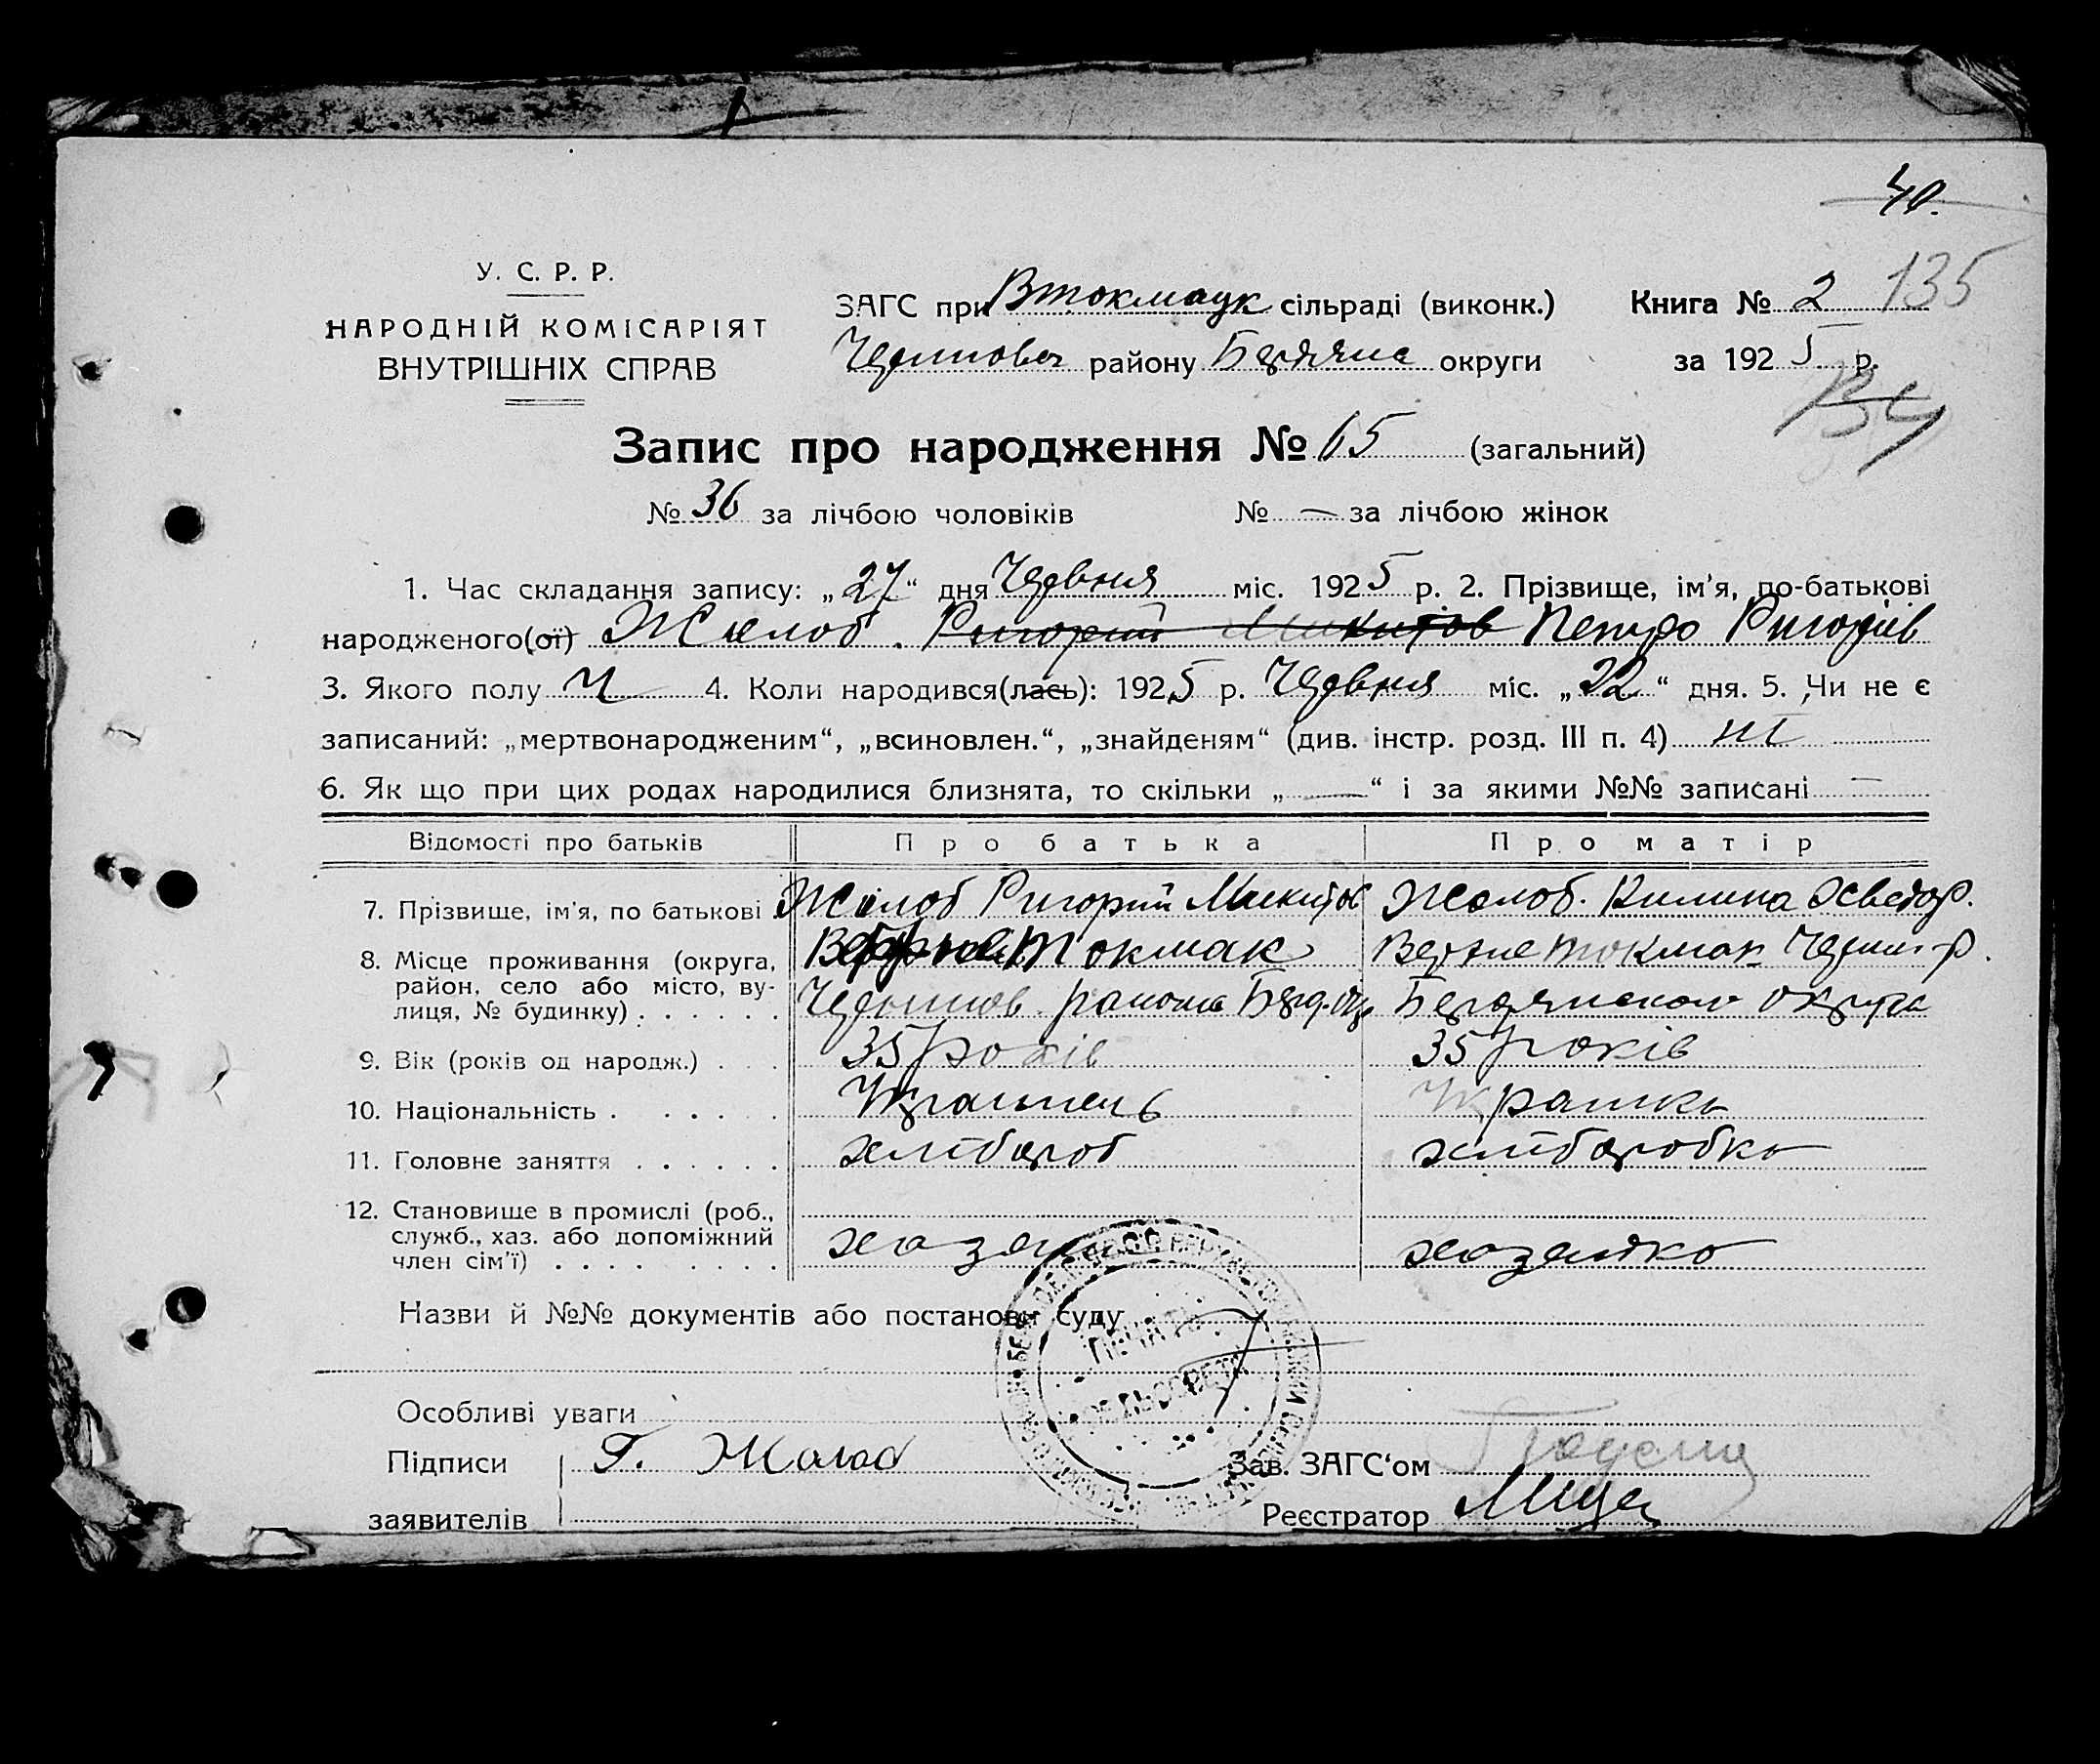 40.
У. С. Р. Р.
НАРОДНІЙ КОМІСАРІЯТ
ВНУТРІШНІХ СПРАВ
ЗАГС при Втокмацк сільраді (виконк.)
району округи
Книга № 2 135
за 1925 р.
134
Запис про народження № 65 (загальний)
№ 36 за лічбою чоловіків № — за лічбою жінок
1. Час складання запису: „27“ дня Червня міс. 1925 р. 2. Прізвище, ім'я, по-батькові
народженого(ої) Жолоб. Григорий Микитов Петро Григорів
3. Якого полу Ч 4. Коли народився(лась): 1925 р. Червня міс. „22“ дня. 5. Чи не є
записаний: „мертвонародженим“, „всиновлен.“, „знайденям“ (див. інстр. розд. III п. 4) ні
6. Як що при цих родах народилися близнята, то скільки „—“ і за якими №№ записані —
Відомості про батьків Про батька Про матір
7. Прізвище, ім'я, по батькові Жолоб Григорий Микитов Жолоб. Килина Хведор.
8. Місце проживання (округа, район, село або місто, вулиця, № будинку) Верхне Токмак Верхне Токмак
района Бердянской округи
9. Вік (років од народж.) 35 років 35 років
10. Національність Українець Українка
11. Головне заняття хлібороб хліборобка
12. Становище в промислі (роб., служб., хаз. або допоміжний член сім'ї) хазяин хазяйка
Назви й №№ документів або постанови суду
ПЕЧАТЬ
СЕЛЬСОВЕТА
Особливі уваги
Підписи Г. Жолоб Зав. ЗАГС'ом
заявителів Реєстратор